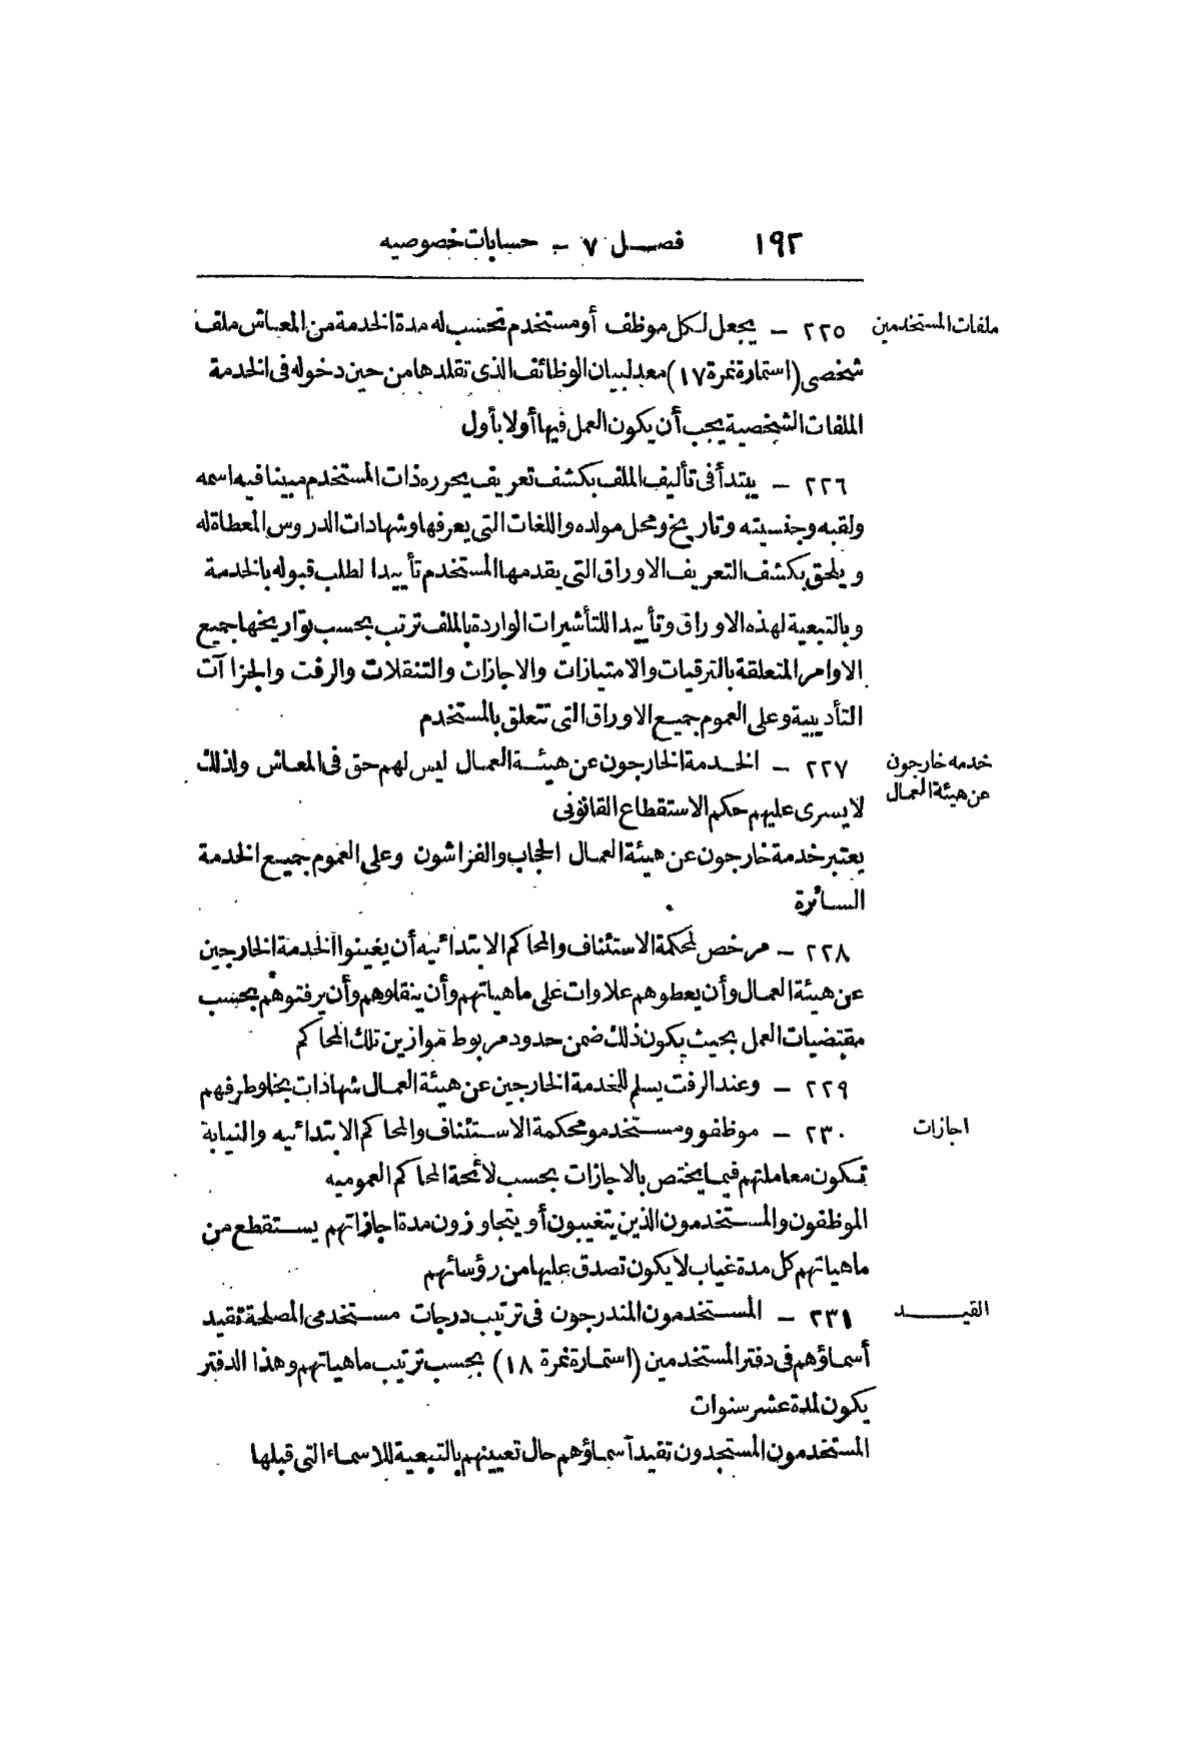 ١٩٢ فصل ٧ – حسابات خصوصيه
ملفات المستخدمين
٢٢٥ – يجعل لكل موظف أو مستخدم تحتسب له مدة الخدمة من المعاش ملف
شخصى (استمارة نمرة ١٧) معد لبيان الوظائف الذى تقلدها من حين دخوله فى الخدمة
الملفات الشخصية يجب أن يكون العمل فيها أولا بأول
٢٢٦ – يبتدأ فى تأليف الملف بكشف تعريف يحرره ذات المستخدم مبينا فيه اسمه
ولقبه وجنسيته وتاريخ ومحل مولده واللغات التى يعرفها وشهادات الدروس المعطاة له
ويلحق بكشف التعريف الاوراق التى يقدمها المستخدم تأييدا لطلب قبوله بالخدمة
وبالتبعية لهذه الاوراق وتأييدا للتأشيرات الواردة بالملف ترتب بحسب تواريخها جميع
الاوامر المتعلقة بالترقيات والامتيازات والاجازات والتنقلات والرفت والجزاآت
التأديبية وعلى العموم جميع الاوراق التى تتعلق بالمستخدم
خدمه خارجون
عن هيئة العمال
٢٢٧ – الخدمة الخارجون عن هيئة العمال ليس لهم حق فى المعاش ولذلك
لا يسرى عليهم حكم الاستقطاع القانونى
يعتبر خدمة خارجون عن هيئة العمال الحجاب والفراشون وعلى العموم جميع الخدمة
السائرة
٢٢٨ – مرخص لمحكمة الاستئناف والمحاكم الابتدائيه أن يعينوا الخدمة الخارجين
عن هيئة العمال وأن يعطوهم علاوات على ماهياتهم وأن ينقلوهم وأن يرفتوهم بحسب
مقتضيات العمل بحيث يكون ذلك ضمن حدود مربوط موازين تلك المحاكم
٢٢٩ – وعند الرفت يسلم للخدمة الخارجين عن هيئة العمال شهادات بخلو طرفهم
اجازات
٢٣٠ – موظفو ومستخدمو محكمة الاستئناف والمحاكم الابتدائيه والنيابة
تكون معاملتهم فيما يختص بالاجازات بحسب لائحة المحاكم العموميه
الموظفون والمستخدمون الذين يتغيبون أو يتجاوزون مدة اجازاتهم يستقطع من
ماهياتهم كل مدة غياب لا يكون تصدق عليها من رؤسائهم
القيد
٢٣١ – المستخدمون المندرجون فى ترتيب درجات مستخدمى المصلحة تقيد
أسماؤهم فى دفتر المستخدمين (استمارة نمرة ١٨) بحسب ترتيب ماهياتهم وهذا الدفتر
يكون لمدة عشر سنوات
المستخدمون المستجدون تقيد أسماؤهم حال تعيينهم بالتبعية للاسماء التى قبلها